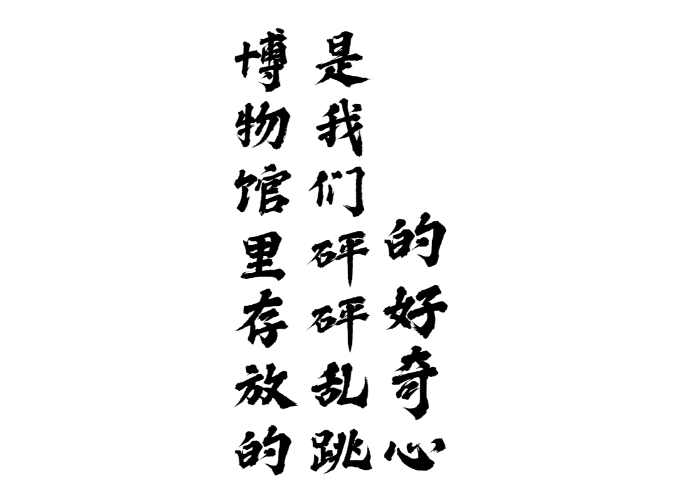 博物馆里存放的
是我们砰砰乱跳
的好奇心